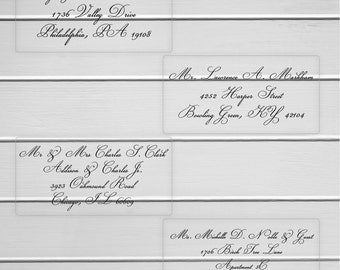 1736 Valley Drive
Philadelphia, PA 19108
Mr. Lawrence A. Markham
4252 Harper Street
Bowling Green, KY 42104
Mr. & Mrs Charles S. Clark
Addison & Charles Jr.
3953 Oakmound Road
Chicago, IL 60609
Ms. Michelle D. Noble & Guest
1706 Birch Tree Lane
Apartment 2C